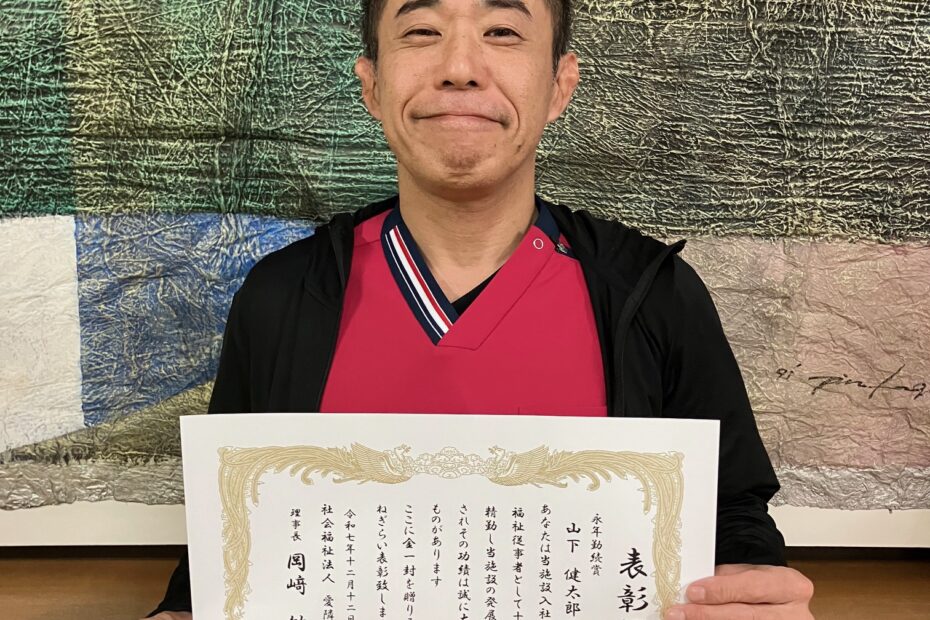 表彰
永年勤続賞
山下 健太郎
あなたは当施設入社
福祉従事者として十
精勤し当施設の発展
されその功績は誠に大
ものがあります
ここに金一封を贈り
ねぎらい表彰致しま
令和七年十二月十二日
社会福祉法人 愛隣
理事長 岡﨑